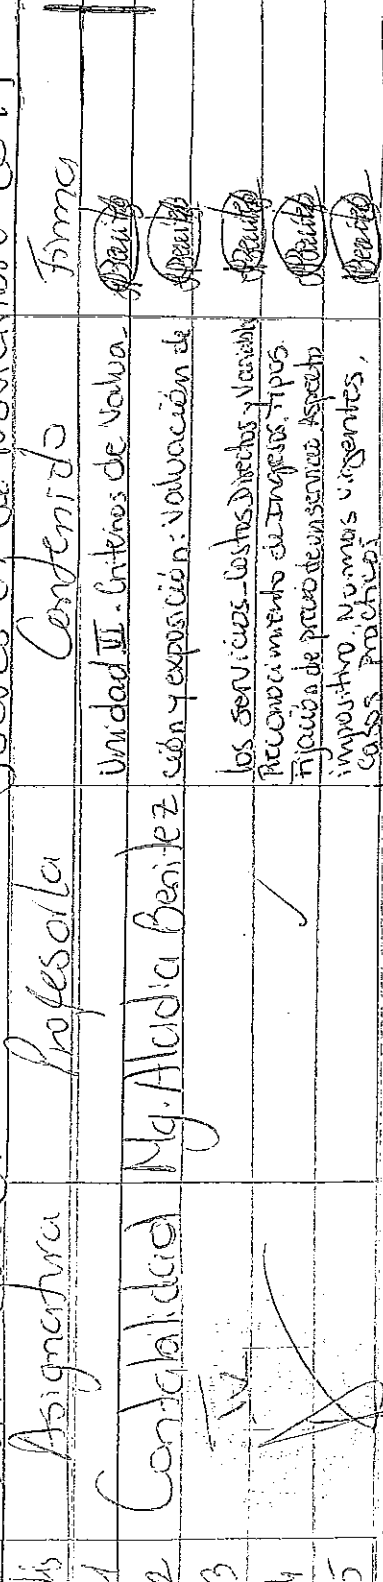 Asignatura Profesor/a Contenido Firma
1 Unidad III. Criterios de Valua- ABenítez
2 Contabilidad Mg. Aladia Benitez ción y exposición: Valuación de ABenítez
3 IV los servicios - Costos Directos y Variable ABenítez
4 Reconocimiento de Ingresos. Tipos. ABenítez
Fijación de precio de un servicio Aspecto
5 impositivo. Normas vigentes, ABenítez
Casos prácticos